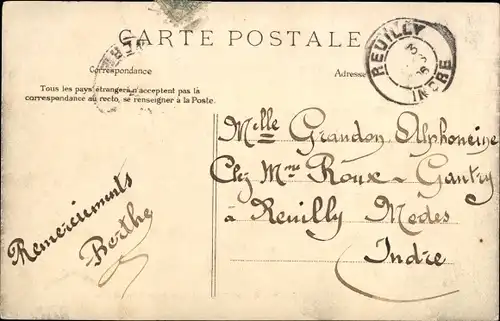 CARTE POSTALE
Correspondance
Adresse
Tous les pays étrangers n'acceptent pas la
correspondance au recto, se renseigner à la Poste.
REUILLY
INDRE
Melle Grandon Alphonsine
Chez Mme Roux-Gantry
à Reuilly
Indre
Remerciments
Berthe